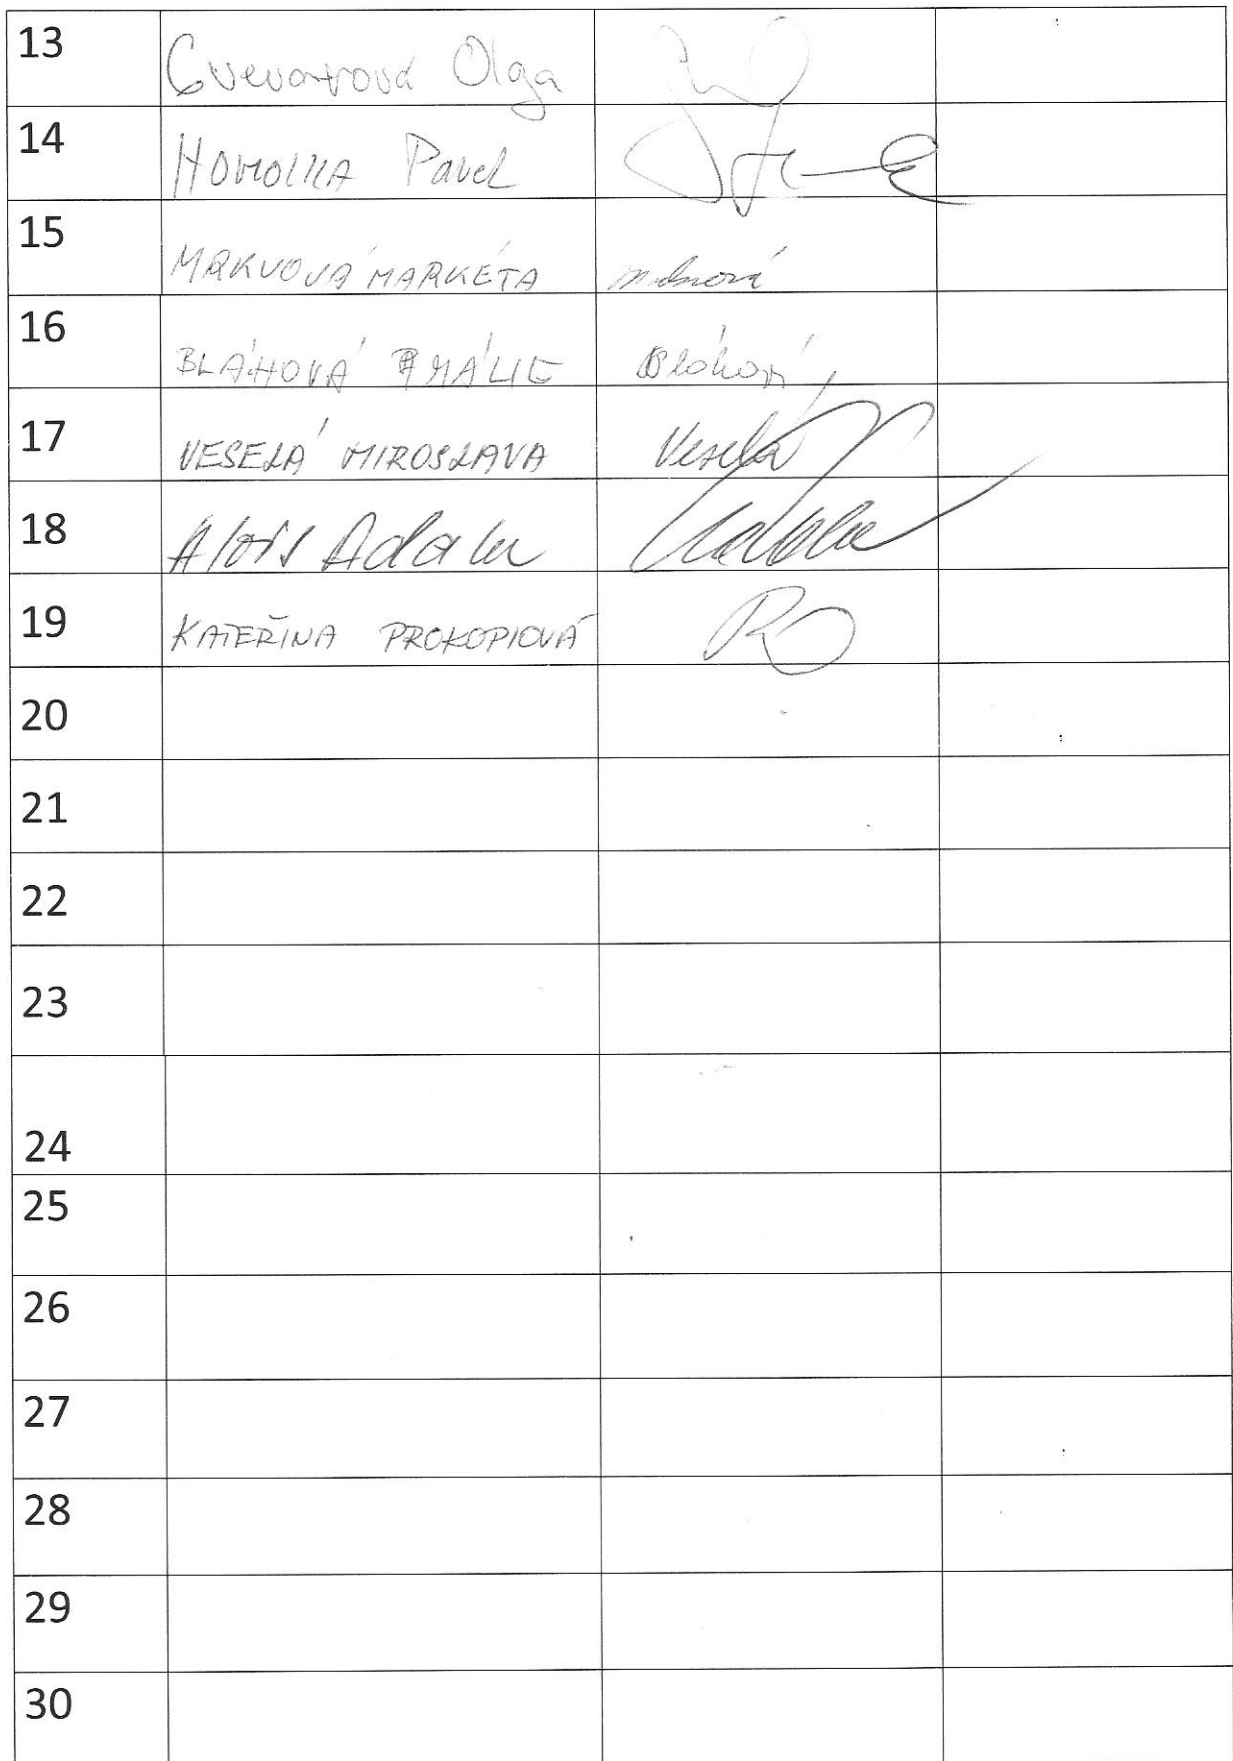 13 Olga
14 HOMOLKA Pavel
15 MRKVOVÁ MARKÉTA
16 BLÁHOVÁ AMÁLIE Bláhová
17 VESELÁ MIROSLAVA Veselá
18 Alois Adam
19 KATEŘINA PROKOPIOVÁ
20
21
22
23
24
25
26
27
28
29
30